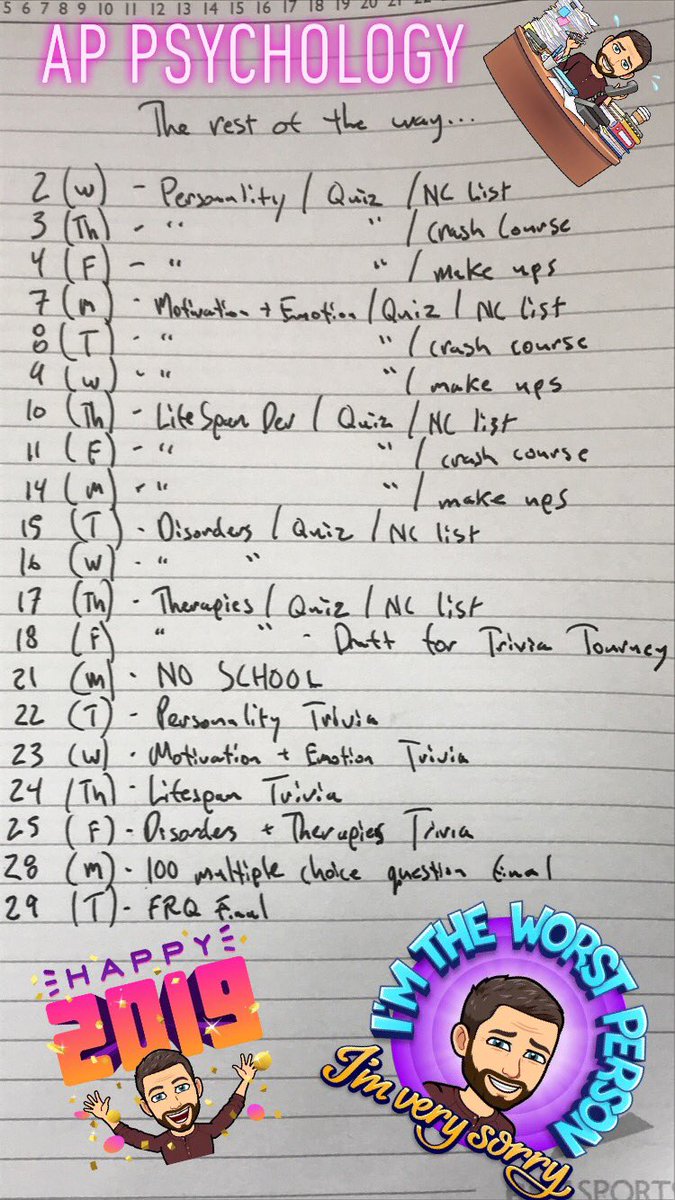 5 6 7 8 9 10 11 12 13 14 15 16 17 18 19 20 21 22
AP PSYCHOLOGY
The rest of the way...
2 (W) - Personality / Quiz / NC list
3 (Th) - " " / crash course
4 (F) - " " / make ups
7 (M) - Motivation + Emotion / Quiz / NC list
8 (T) - " " / crash course
9 (W) - " " / make ups
10 (Th) - LifeSpan Dev / Quiz / NC list
11 (F) - " " / crash course
14 (M) - " " / make ups
15 (T) - Disorders / Quiz / NC list
16 (W) - " "
17 (Th) - Therapies / Quiz / NC list
18 (F) " " - Draft for Trivia Tourney
21 (M) - NO SCHOOL
22 (T) - Personality Trivia
23 (W) - Motivation + Emotion Trivia
24 (Th) - Lifespan Trivia
25 (F) - Disorders + Therapies Trivia
28 (M) - 100 multiple choice question final
29 (T) - FRQ Final
HAPPY
2019
I'M THE WORST PERSON
I'm very sorry
SPORTS